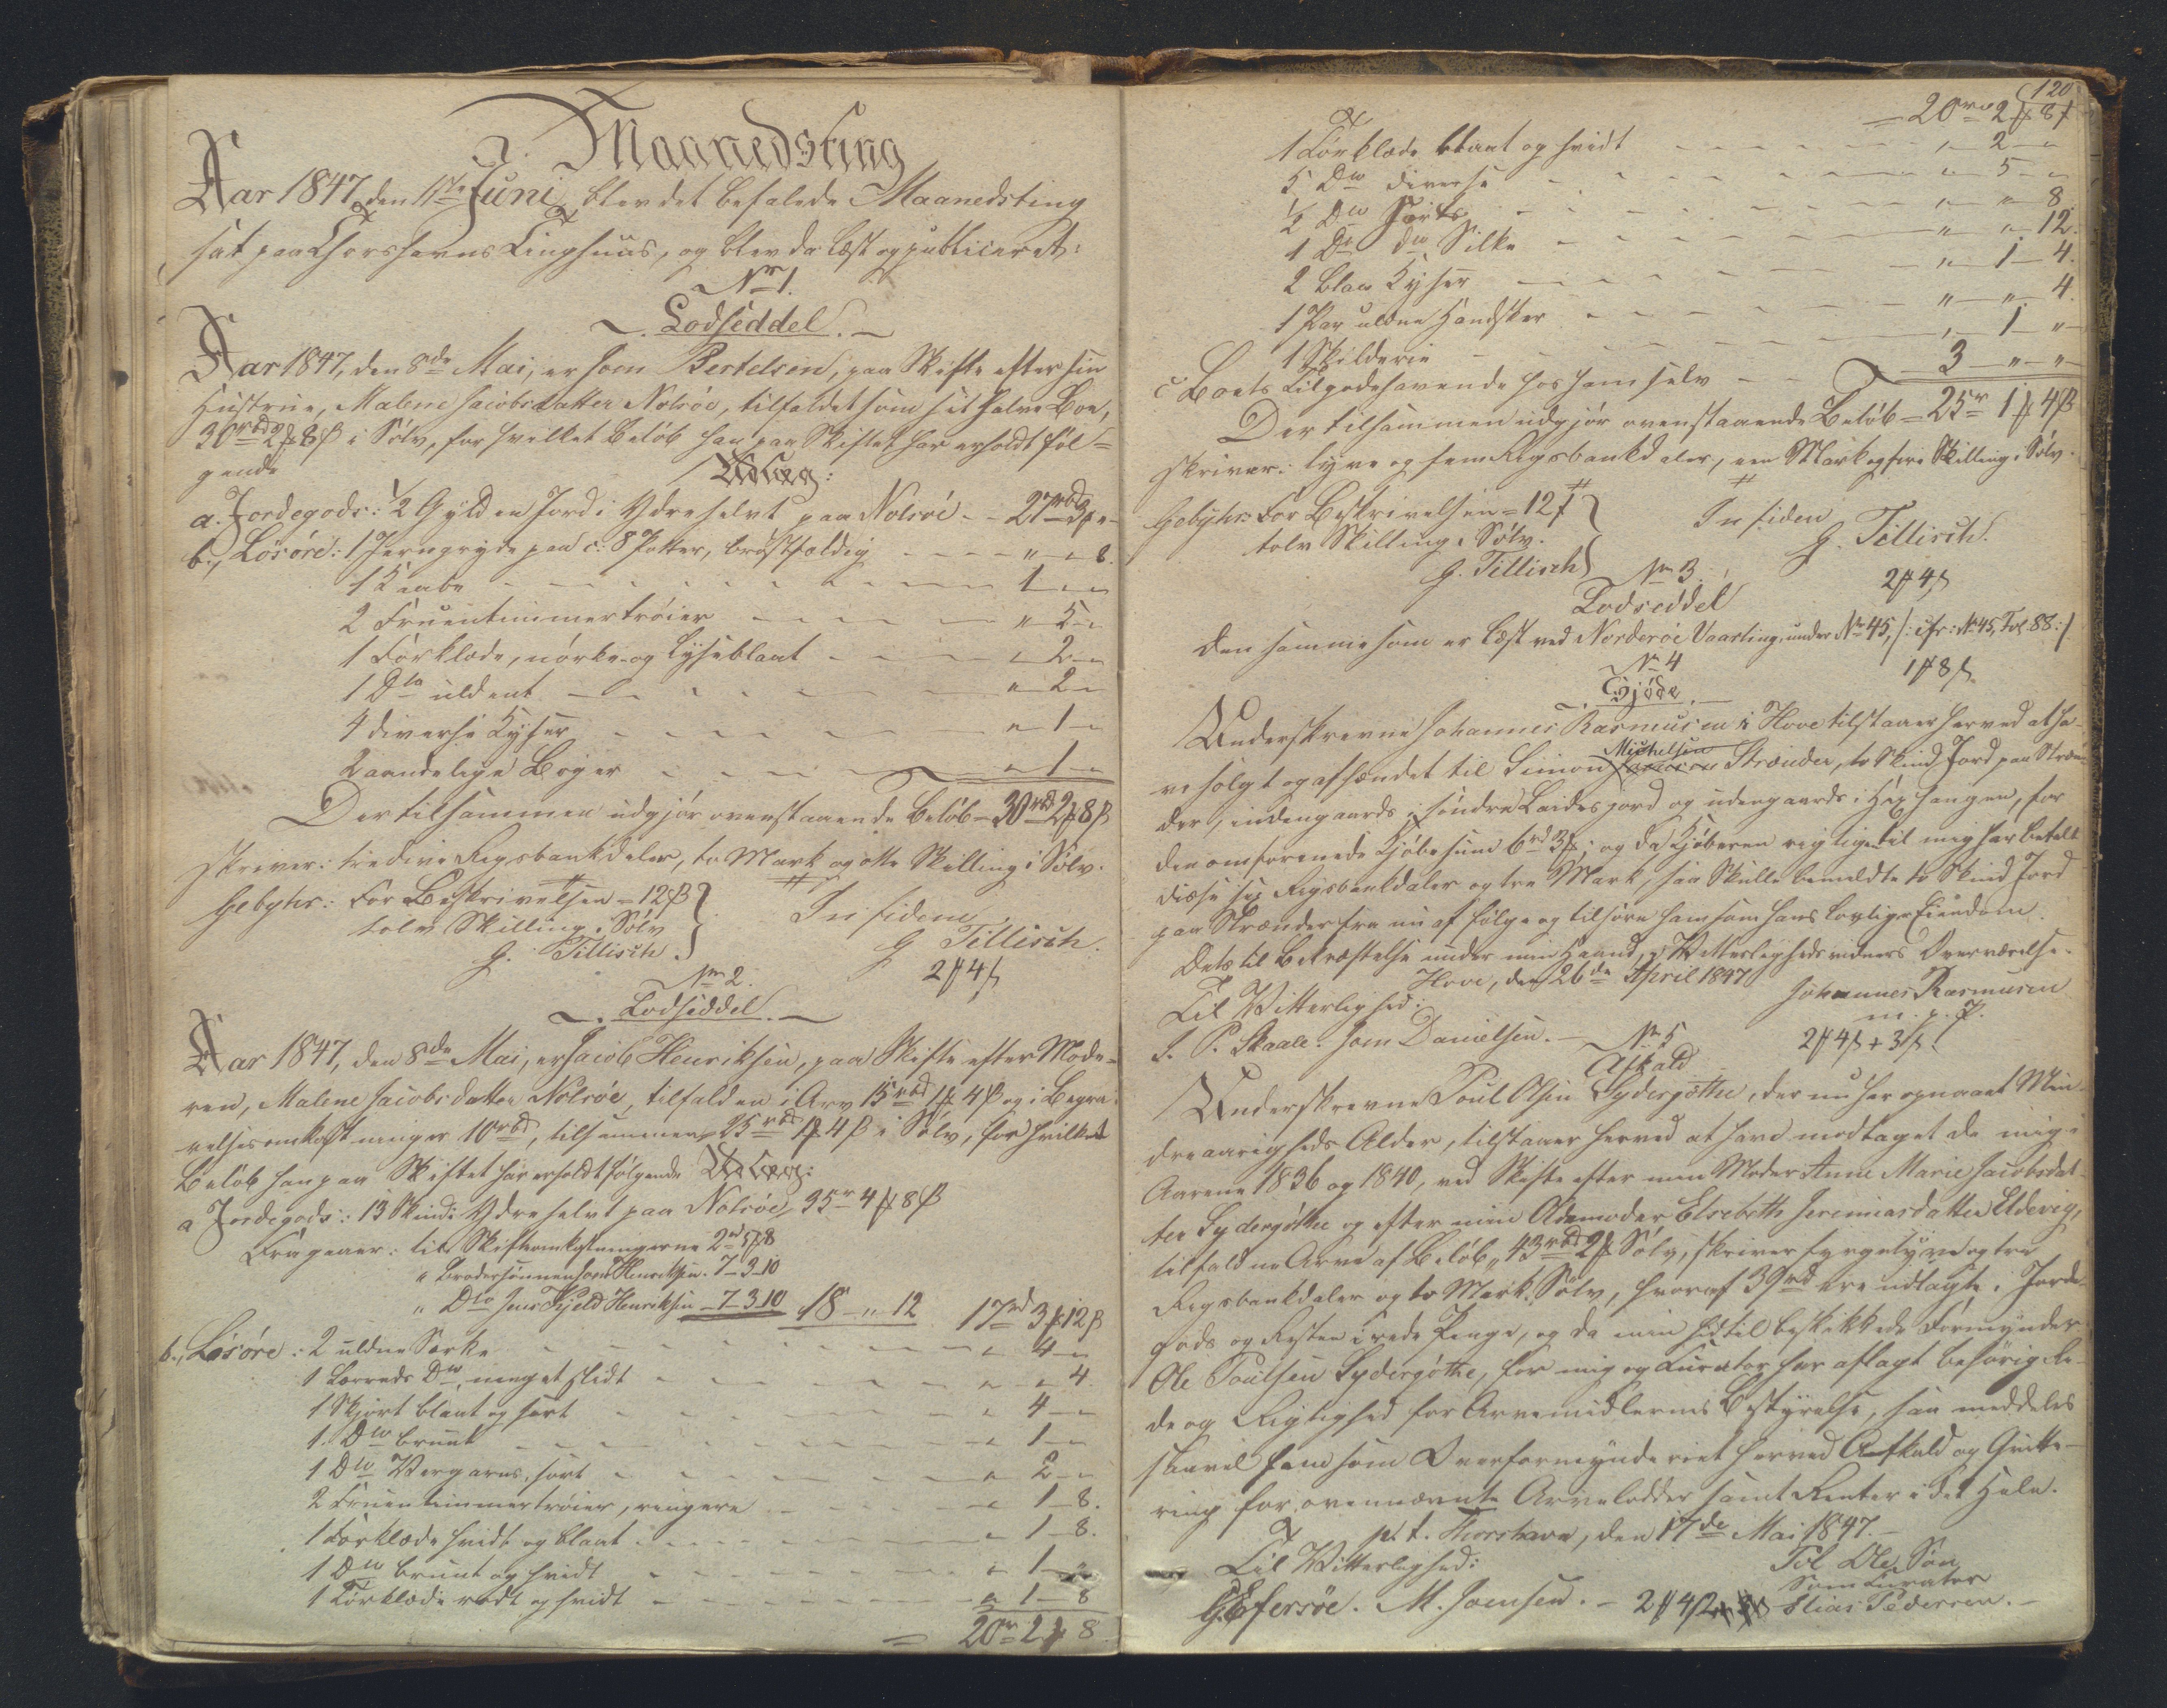 Maanedsting
Aar 1847, den 11te Juni, blev det befalede Maanedsting
sat paa Thorshavns Tinghuus, og blev da læst og publiceret:
No 1.
Lodseddel.
Aar 1847, den 8de Mai, er Joen Bertelsen, paa Skifte efter sin
Hustrue, Malene Jacobsdatter Nolsöe, tilfaldet som sit halve Boe,
30rbd 2 # 8 ß i Sölv, for hvilket Belöb han paa Skiftet har erholdt föl-
gende Udlæg:
a. Jordegods: 1/2 Gylden Jord i Ydrehelvt paa Nolsöe - - 27rbd 3# "-
b., Lösöre: 1 Jerngryde paa c: 8 Potter, bröstfældig - - - - " - " 8.
1 Kaabe - - - 1 - "
2 Fruentimmertröier - - - " 5 - "
1 Forklæde, mörke- og lyseblaat - - - " 2 - "
1 Dto uldent - - - " 2 - "
4 diverse Kyser - - - " 1 - "
2 aandelige Böger - - - " 1 - "
Der tilsammen udgjör ovenstaaende Belöb = 30rbd 2# 8ß
skriver: tredive Rigsbankdaler, to Mark og otte Skilling i Sölv.
Gebyhr: For Beskrivelsen = 12ß
tolv Skilling i Sölv
G. Tillisch
In fidem
G Tillisch.
No 2.
2# 4ß
Lodseddel.
Aar 1847, den 8de Mai, er Jacob Henriksen, paa Skifte efter Mode-
ren, Malene Jacobsdatter Nolsöe, tilfalden i Arv 15rbd 1# 4ß og i Begra-
velsesomkostninger 10rbd, tilsammen 25rbd 1# 4ß i Sölv, for hvilket
Belöb han paa Skiftet har erholdt fölgende Udlæg:
a Jordegods: 13 Skind i Ydrehelvt paa Nolsöe, 35r 4# 8ß
Fragaaer: til Skifteomkostningerne 2rd 5# 8
" Brodersönnen Joen Henriksen. 7 - 3 - 10
" Dto Jens Kjeld Henriksen - 7 - 3 10 18 - " 12 17rd 3# 12ß
b., Lösöre: 2 uldne Særke - - - " 4 - "
1 Lærreds Dto, meget slidt - - - " - " 4
1 Skjört blaat og sort - - - " 4 - "
1 Dto bruunt - - - " 1 - "
1 Dto Vergarns, sort - - - " 2 - "
2 Fruentimmertröier, ringere - - - " 1 - 8.
1 Forklæde hvidt og blaat - - - " 1 - 8.
1 Dto bruunt og hvidt - - - " 1 - "
1 Törklæde rödt og hvidt - - - " 1 - 8
= 20r 2# 8
120
= 20r 2# 8ß
1 Törklæde blaat og hvidt - - - " 2 - "
5 Dto diverse - - - " 5 - "
1/2 Dto sorte - - - " - " 8.
1 Dto do Silke - - - " - " 12.
2 blaa Kyser - - - " 1 - 4.
1 Par uldne Handsker - - - " - " 4.
1 Skilderie - - - " 1 - "
c Boets Tilgodehavende hos ham selv - - 3 - " - "
Der tilsammen udgjör ovenstaaende Belöb = 25r 1# 4ß
skriver: tyve og fem Rigsbankdaler, een Mark og fire Skilling i Sölv.
Gebyhr: For Beskrivelsen = 12ß
tolv Skilling i Sölv.
G. Tillisch
In fidem
G. Tillisch.
No 3.
2# 4ß
Lodseddel
Den samme som er læst ved Norderöe Vaarting, under No 45, /: cfr: No 45, Fol: 88:/
No 4
1# 8ß
Skjöde.
Underskrevne Johannes Rasmusen i Hove tilstaaer herved at ha-
ve solgt og afhændet til Simon Michelsen Strænder, to Skind Jord paa Stræn-
der, indengaards i söndre Laidesjord og udengaards i Hag hangen, for
den omforenede Kjöbesum 6rd 3#; og da Kjöberen rigtig til mig har betalt
disse sex Rigsbankdaler og tre Mark, saa skulle bemeldte to Skind Jord
paa Strænder fra nu af fölge og tilhöre ham som hans lovlige Eiendom.
Dets til Bekræftelse under min Haand, i Vitterlighedsvidners Overværelse.
Hove, den 26de April 1847
Til Vitterlighed:
Johannes Rasmusen
m. p. P.
J. P. Skaale. Joen Danielsen.
No 5
2# 4ß + 3ß
Afkald
Underskrevne Poul Olsen Sydergöthe, der nu har opnaaet Min-
dreaarigheds Alder, tilstaaer herved at have modtaget de mig i
Aarene 1836 og 1840, ved Skifte efter min Moder Anne Marie Jacobsdat-
ter Sydergöthe og efter min Oldemoder Elsebeth Jeremiasdatter Eldevig,
tilfaldne Arve af Belöb, 43rbd 2# Sölv, skriver fyrgetyve og tre
Rigsbankdaler og to Mark Sölv, hvoraf 39rbd ere udlagte i Jorde-
gods og Resten i rede Penge, og da min hidtil beskikkede Formynder
Ole Poulsen Sydergöthe, for mig og Curator har aflagt behörig Re-
de og Rigtighed for Arvemidlernes Bestyrelse, saa meddeles
saavel ham som Overformynderiet herved Afkald og Qvitte-
ring for ovennævnte Arvelodder samt Renter i det Hele.
p. t. Thorshavn, den 17de Mai 1847.
Til Vitterlighed:
Pol Ole Sön
som Curator
G. Efersöe. M. Joensen. - 2# 4ß Elias Pedersen.